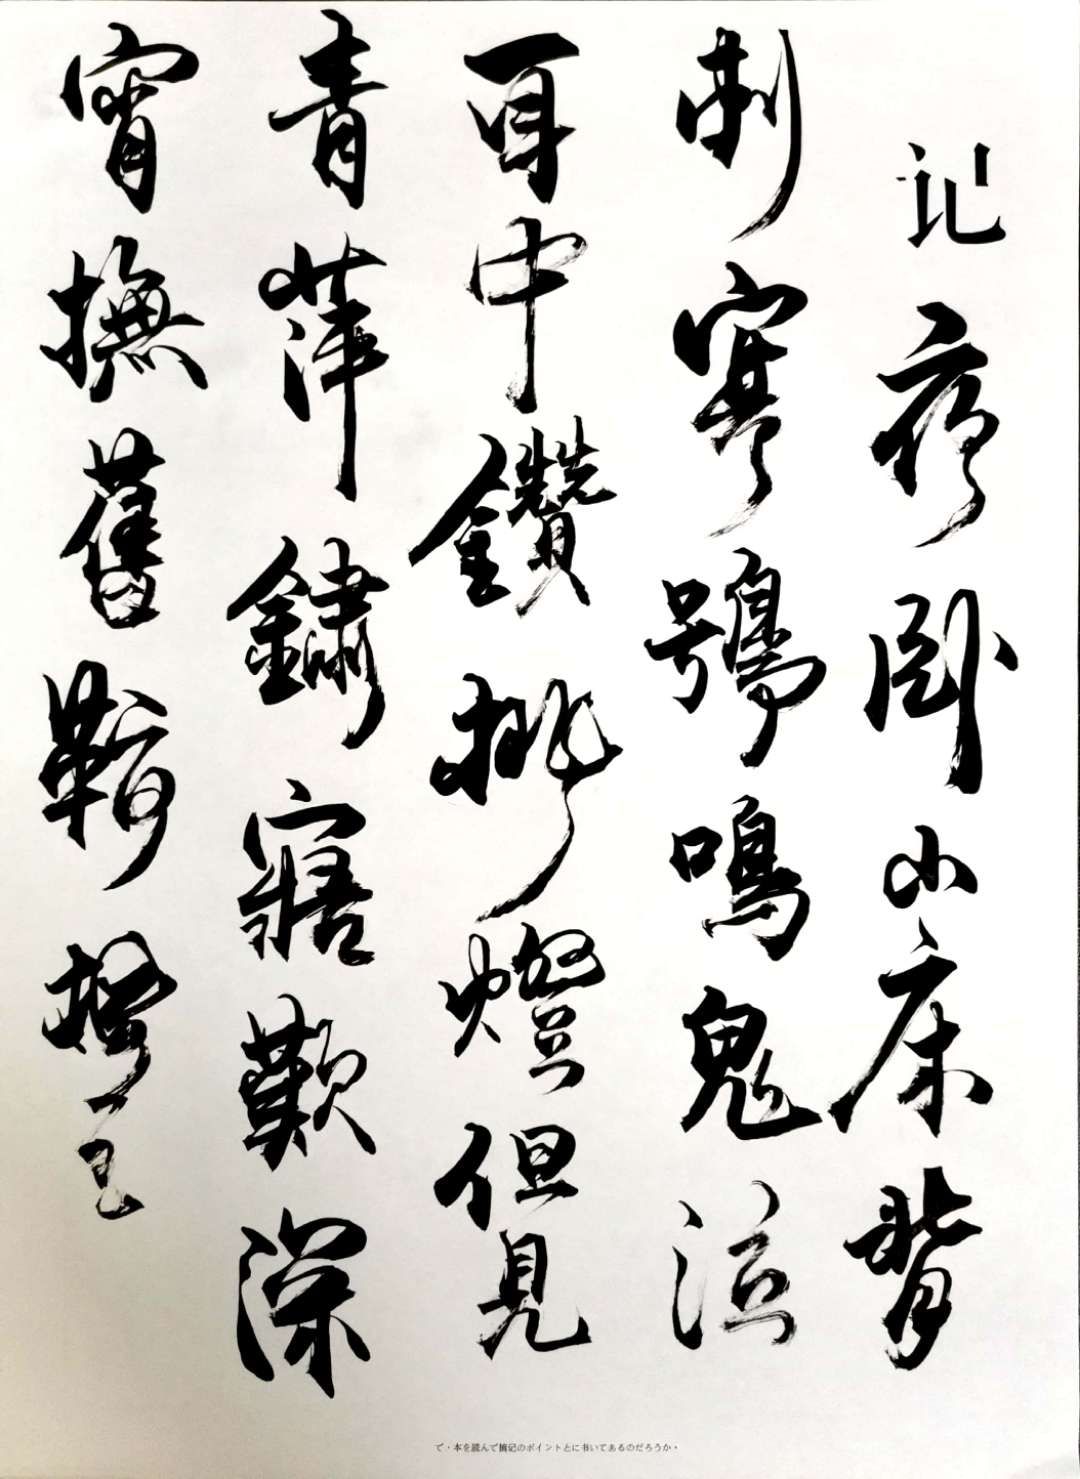 记夜卧小床背
刺寒鴞鳴鬼泣
耳中鑽挑燈但見
青萍鏽寤歎深
宵撫舊鞍
で・本を読んで摘记のポイントとに书いてあるのだろうか・